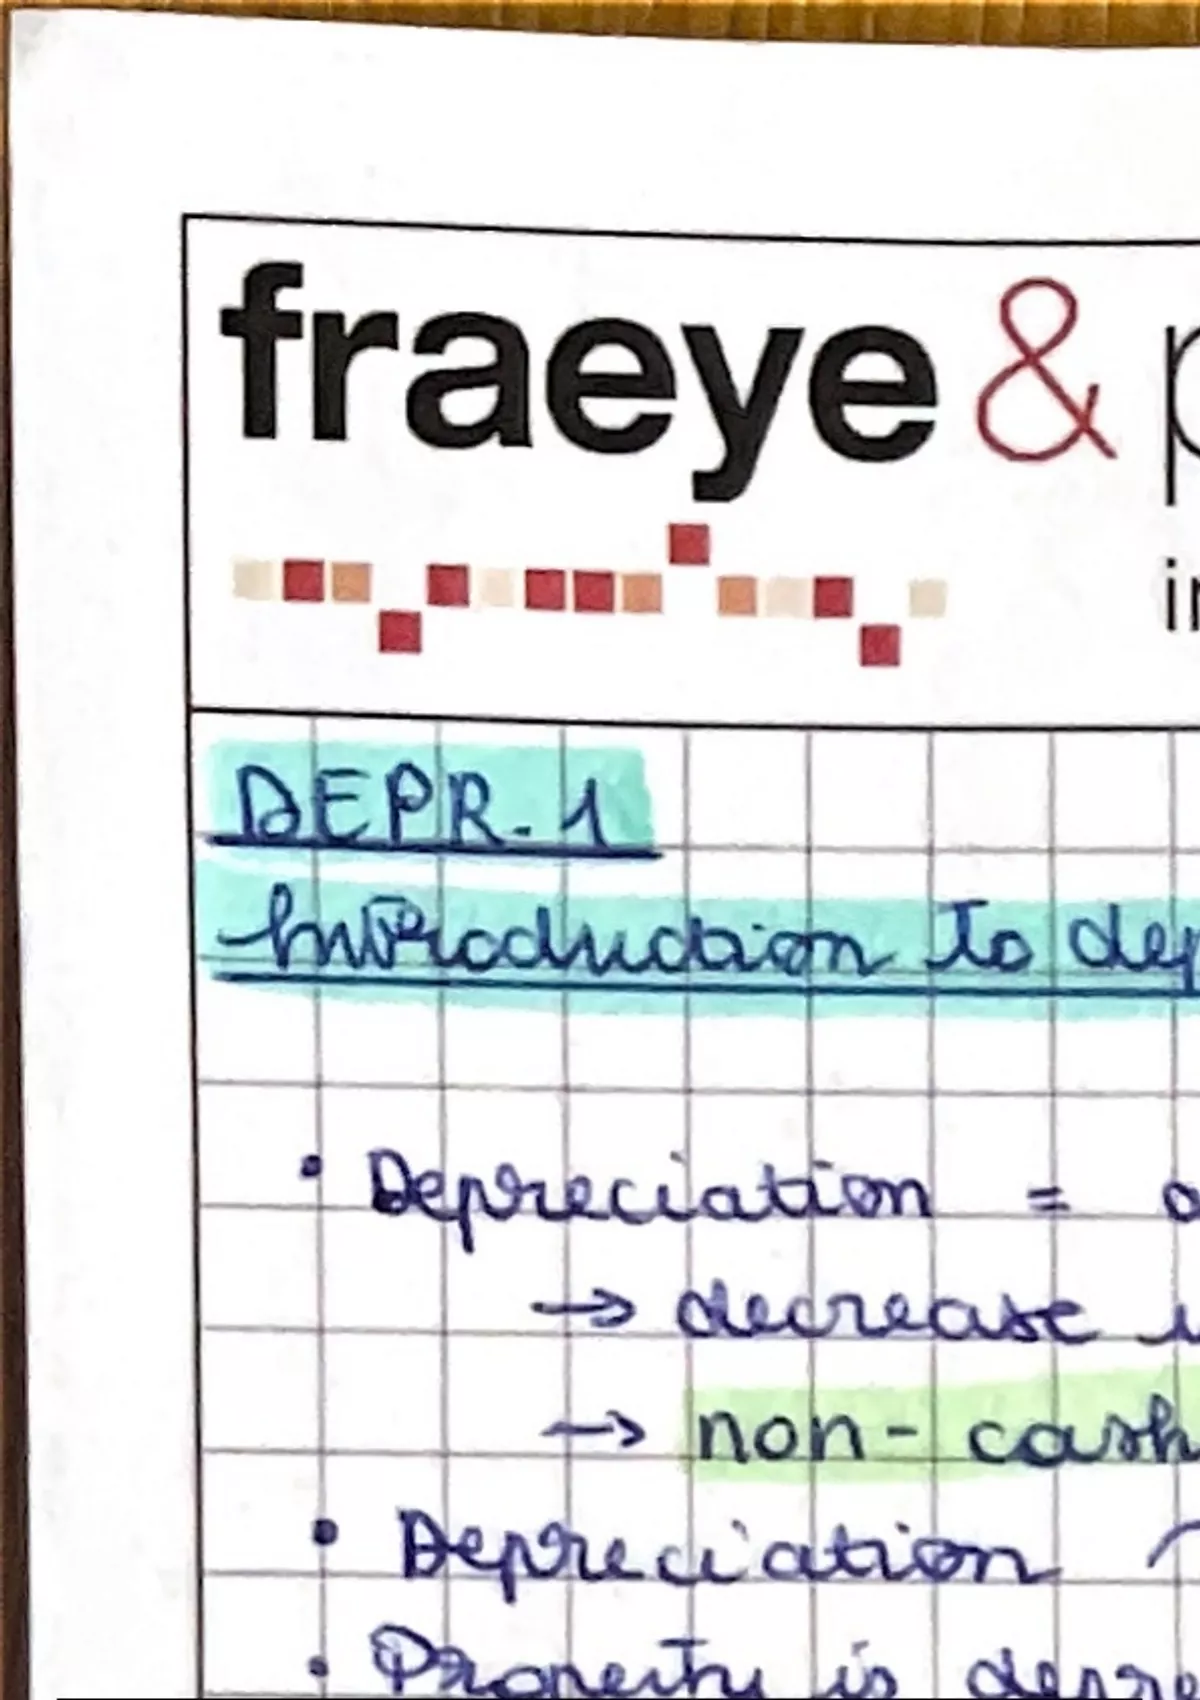 fraeye &
DEPR. 1
Introduction to dep
• Depreciation =
→ decrease
→ non-cash
• Depreciation
• Property is depre